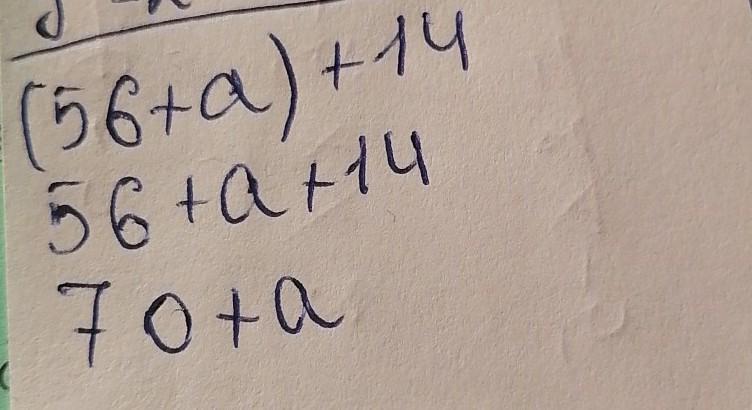 (56+a)+14
56+a+14
70+a